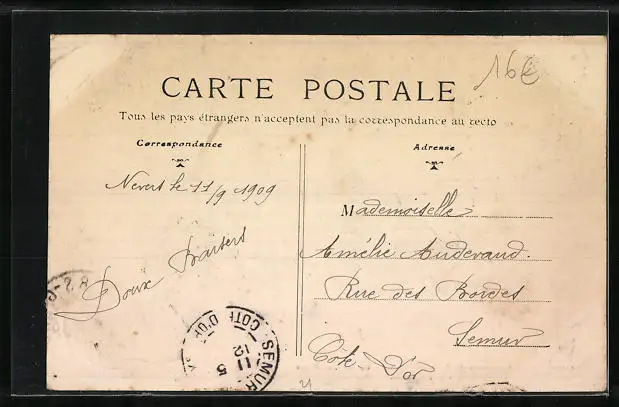 16€
CARTE POSTALE
Tous les pays étrangers n'acceptent pas la correspondance au recto
Correspondance
Nevers le 11/9 1909
Doux Baisers
Adresse
Mademoiselle
Amélie Audevaud.
Rue des Bordes
Semur
Côte d'Or
SEMUR
COTE D'OR
11 5
12